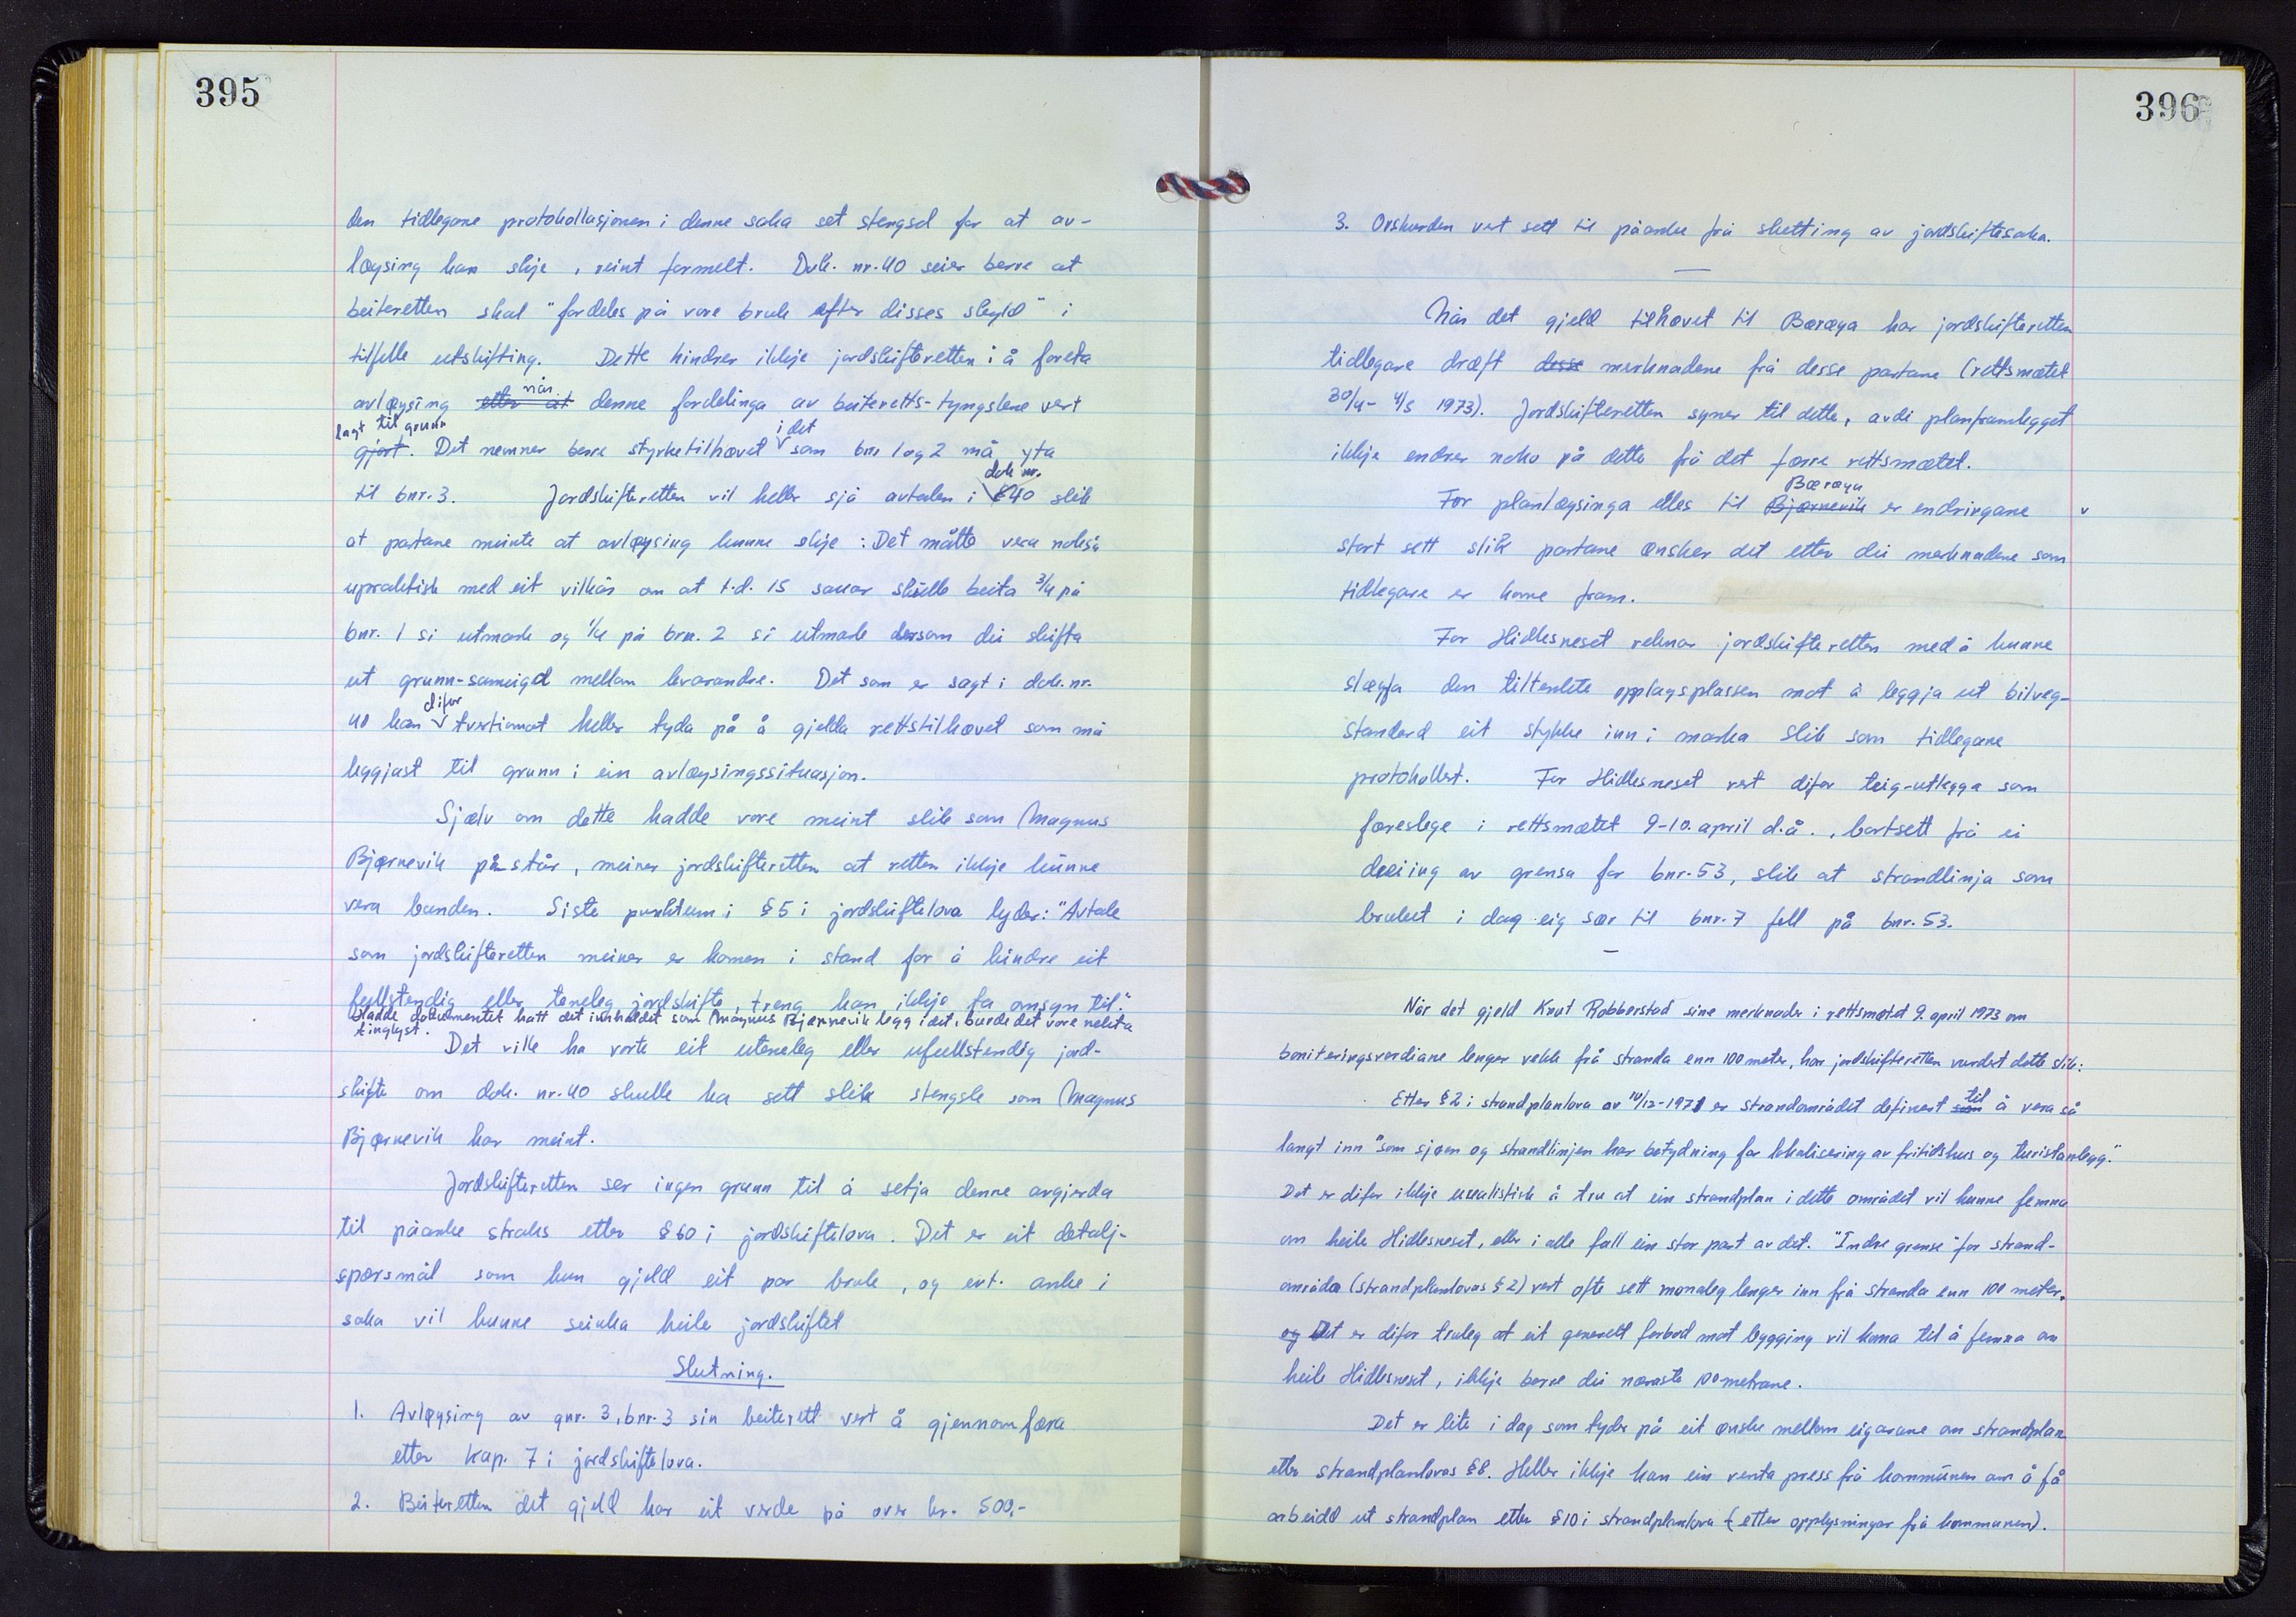 395
den tidlegare protokollasjonen i denne saka set stengsel for at av-
løysing kan skje, reint formelt. Dok. nr. 40 seier berre at
beiteretten skal "fordeles på vore bruk efter disses skyld" i
tilfelle utskifting. Dette hindrer ikkje jordskifteretten i å foreta
avløysing etter at når denne fordelinga av beiteretts-tyngslene vert
gjort lagt til grunn. Det nemner berre styrketilhøvet i det som bnr. 1 og 2 må yta
til bnr. 3. Jordskifteretten vil heller sjå avtalen i dok. nr. 40 slik
at partane meinte at avløysing kunne skje: Det måtte vera nokså
upraktisk med eit vilkår om at t.d. 15 sauar skulle beita 3/4 på
bnr. 1 si utmark og 1/4 på brn. 2 si utmark dersom dei skifta
ut grunn-sameiget mellom kvarandre. Det som er sagt i dok. nr.
40 kan difor tvertimot heller tyda på å gjelda rettstilhøvet som må
leggjast til grunn i ein avløysingssituasjon.
Sjølv om dette hadde vore meint slik som Magnus
Bjørnevik påstår, meiner jordskifteretten at retten ikkje kunne
vera bunden. Siste punktum i § 5 i jordskiftelova lyder: "Avtale
som jordskifteretten meiner er komen i stand for å hindre eit
fullstendig eller teneleg jordskifte, treng han ikkje ta omsyn til."
Hadde dokumentet hatt det innhaldet som Magnus Bjørnevik legg i det, burde det vore nekta
tinglyst.
Det ville ha vorte eit uteneleg eller ufullstendig jord-
skifte om dok. nr. 40 skulle ha sett slik stengsle som Magnus
Bjørnevik har meint.
Jordskifteretten ser ingen grunn til å setja denne avgjerda
til påanke straks etter § 60 i jordskiftelova. Det er eit detalj-
spørsmål som kun gjeld eit par bruk, og evt. anke i
saka vil kunne seinka heile jordskiftet
Slutning.
1. Avløysing av gnr. 3, bnr. 3 sin beiterett vert å gjennomføra
etter kap. 7 i jordskiftelova.
2. Beiteretten det gjeld har eit verde på over kr. 500,-
396
3. Orskurden vert sett til påanke frå slutting av jordskiftesaka.
Når det gjeld tilhøvet til Børøya har jordskifteretten
tidlegare drøft desse merknadene frå desse partane (rettsmøtet
30/4- 4/5 1973). Jordskifteretten syner til dette, avdi planframlegget
ikkje endrer noko på dette frå det førre rettsmøtet.
For planløysinga elles til Bjørnevik Børøya er endringane
stort sett slik partane ønsker det etter dei merknadene som
tidlegare er kome fram.
For Hidlesneset reknar jordskifteretten med å kunne
sløyfa den tiltenkte opplagsplassen mot å leggja ut bilveg-
standard eit stykke inn i marka slik som tidlegare
protokollert. For Hidlesneset vert difor teig-utlegga som
føreslege i rettsmøtet 9-10. april d.å., bortsett frå ei
dreiing av grensa for bnr. 53, slik at strandlinja som
bruket i dag eig sør til bnr. 7 fell på bnr. 53.
Når det gjeld Knut Robberstad sine merknader i rettsmøtet 9. april 1973 om
boniteringsverdiane lenger vekk frå stranda enn 100 meter, har jordskifteretten vurdert dette slik:
Etter § 2 i strandplanlova av 10/12-1971 er strandområdet definert som til å vera så
langt inn "som sjøen og strandlinjen har betydning for lokalisering av fritidshus og turistanlegg."
Det er difor ikkje urealistisk å tru at ein strandplan i dette området vil kunne femna
om heile Hidlesneset, eller i alle fall ein stor part av det. "Indre grense" for strand-
områda (strandplanlovas § 2) vert ofte sett monaleg lenger inn frå stranda enn 100 meter.
og Det er difor truleg at eit generelt forbod mot bygging vil koma til å femna om
heile Hidlesneset, ikkje berre dei næraste 100 metrane.
Det er lite i dag som tyder på eit ønske mellom eigarane om strandplan
etter strandplanlovas § 8. Heller ikkje kan ein venta press frå kommunen om å få
arbeidd ut strandplan etter § 10 i strandplanlova (etter opplysningar frå kommunen).